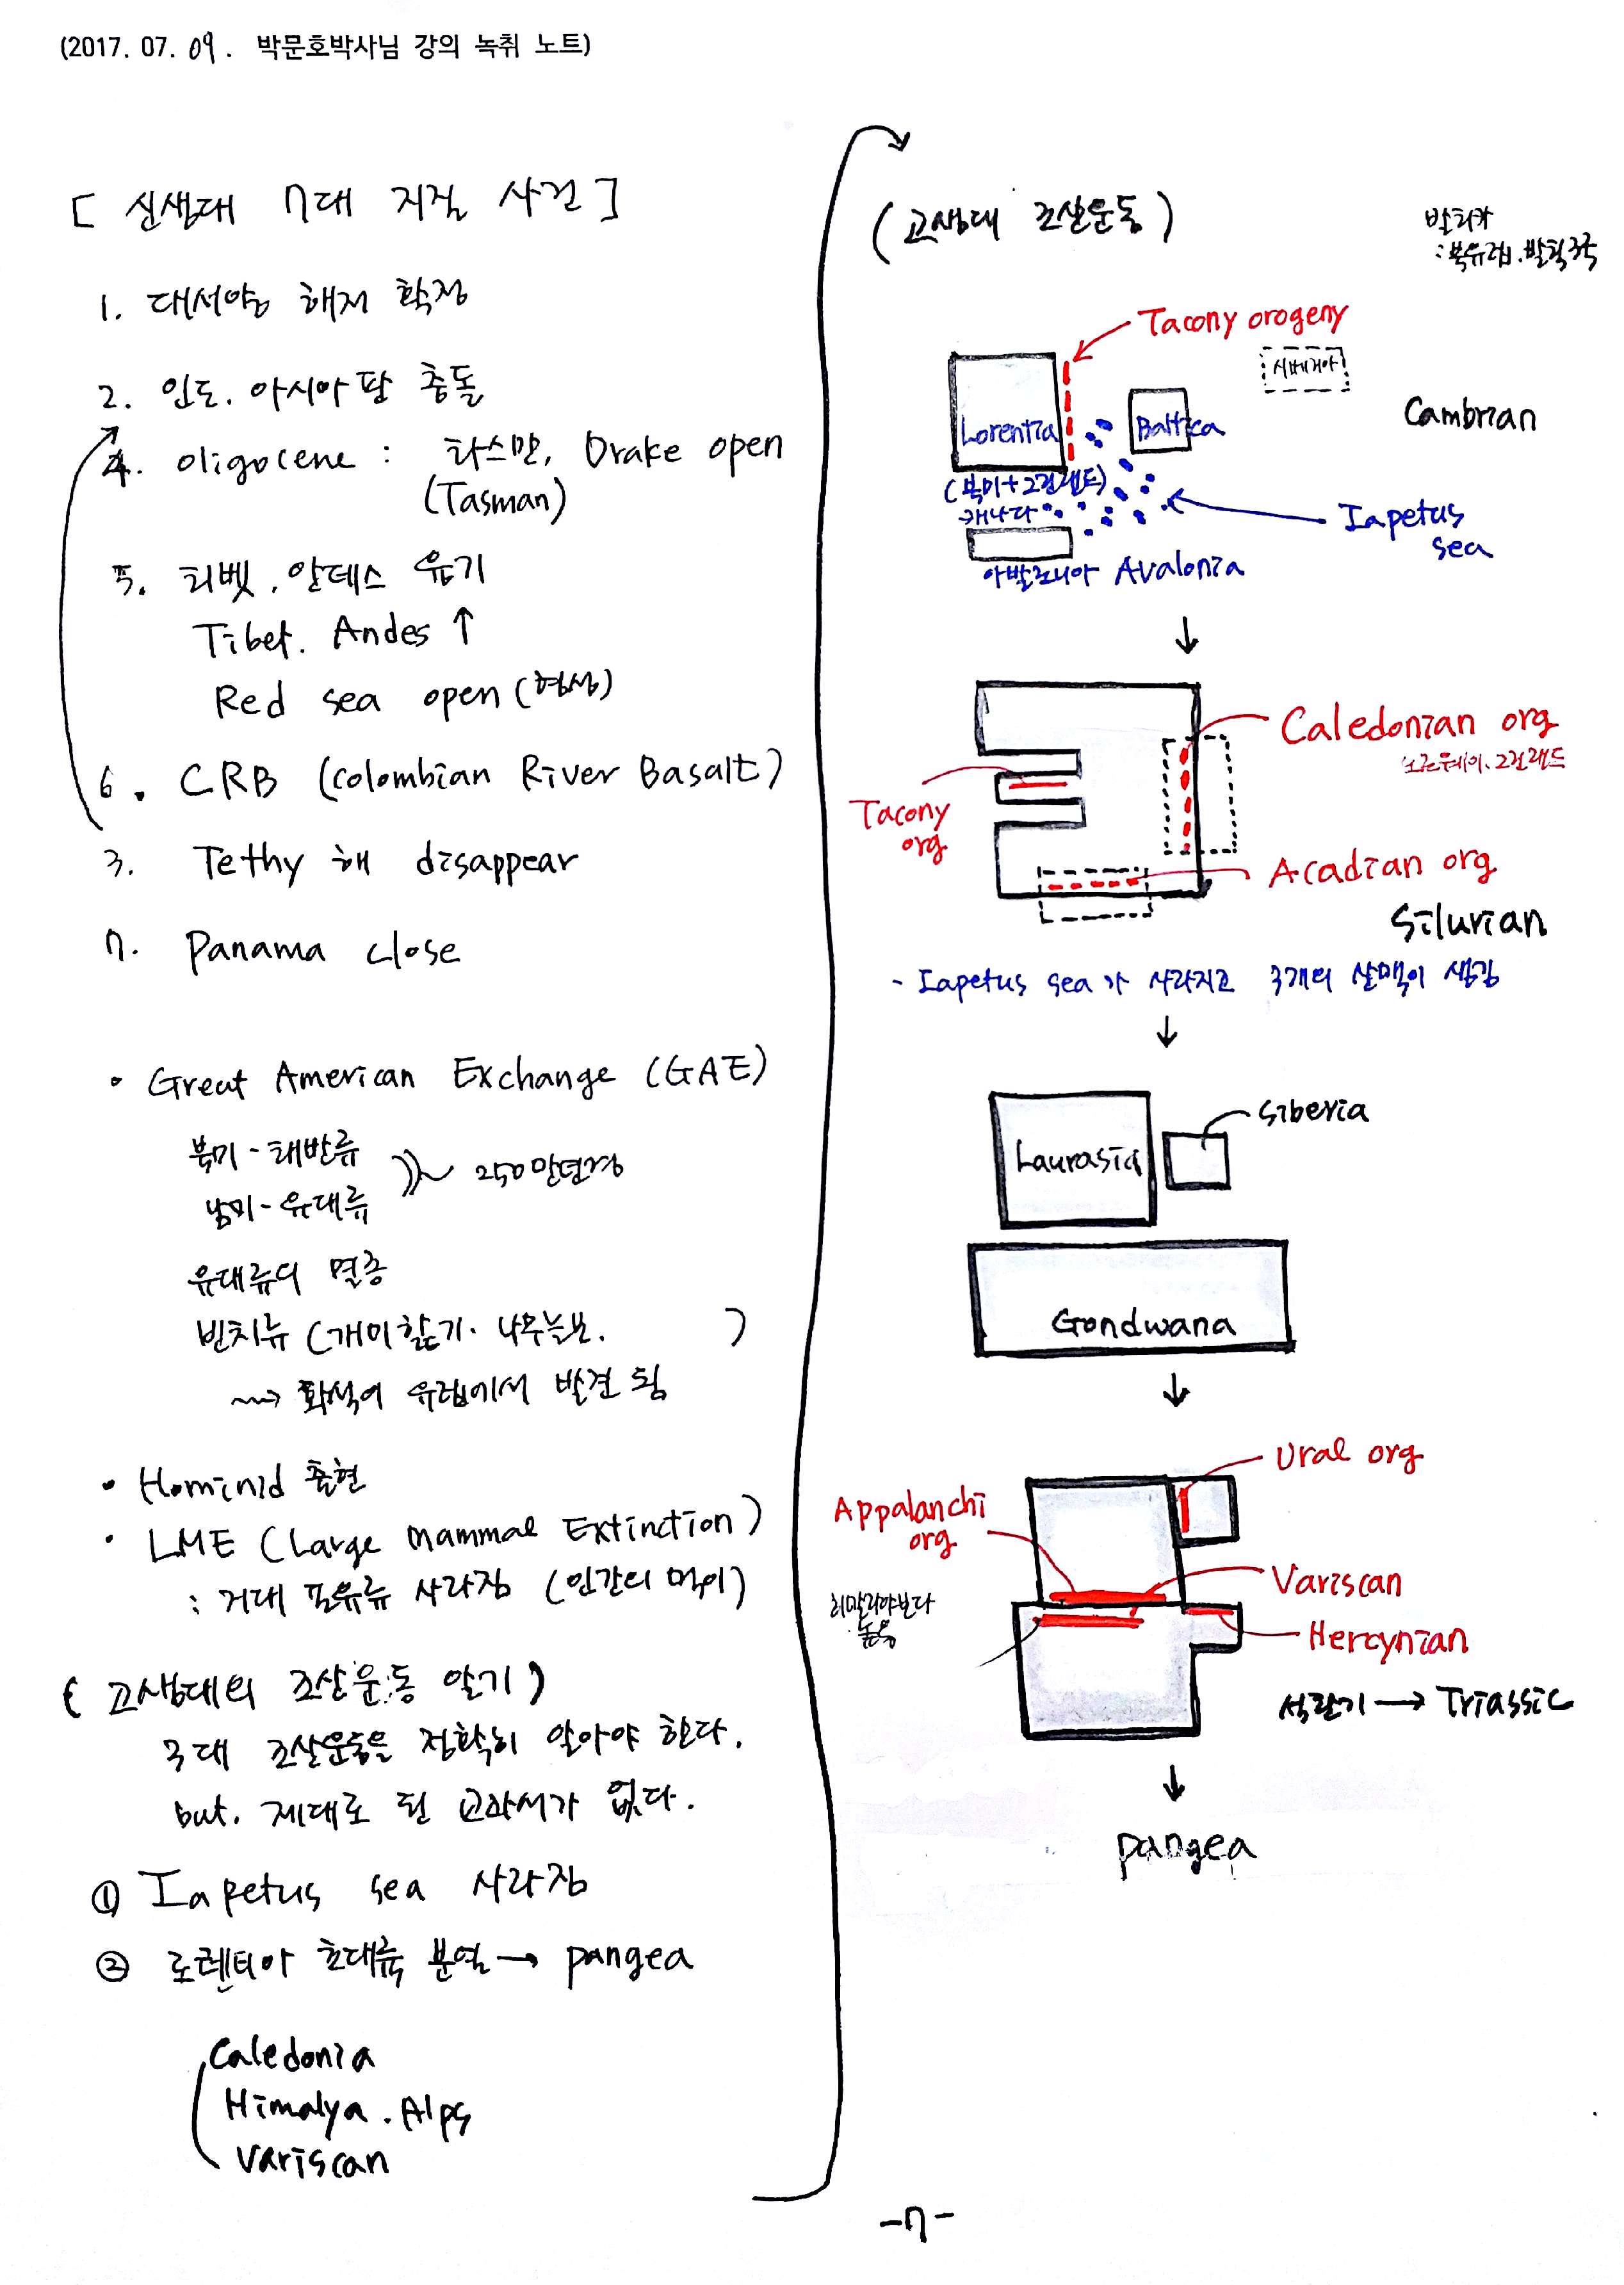 (2017. 07. 09. 박문호박사님 강의 녹취 노트)
[ 신생대 7대 지질 사건 ]
1. 대서양 해저 확장
2. 인도. 아시아 판 충돌
4. oligocene : 타스만, Drake open
(Tasman)
5. 티벳. 안데스 융기
Tibet. Andes ↑
Red sea open (형성)
6. CRB (Colombian River Basalt)
3. Tethy 해 disappear
7. Panama close
• Great American Exchange (GAE)
북미 - 태반류
남미 - 유대류
250만년경
유대류의 멸종
빈치류 (개미핥기. 나무늘보. )
~~> 화석이 유럽에서 발견 됨
• Hominid 출현
• LME (Large mammal Extinction)
: 거대 포유류 사라짐 (인간의 먹이)
( 고생대의 조산운동 알기 )
3대 조산운동을 정확히 알아야 한다.
but. 제대로 된 교과서가 없다.
① Iapetus sea 사라짐
② 로렌티아 초대륙 분열 → pangea
Caledonia
Himalya. Alps
Variscan
(고생대 조산운동)
발티카
: 북유럽. 발칙3국
Tacony orogeny
시베리아
Lorentia
Baltica
Cambrian
(북미+그린랜드)
캐나다
Iapetus
sea
아발로니아 Avalonia
↓
Caledonian org
노르웨이. 그린랜드
Tacony
org
Acadian org
Silurian
- Iapetus sea가 사라지고 3개의 산맥이 생김
↓
Siberia
Laurasia
Gondwana
↓
Ural org
Appalanchi
org
Variscan
히말라야보다
높음
Hercynian
석탄기 → Triassic
↓
pangea
-7-